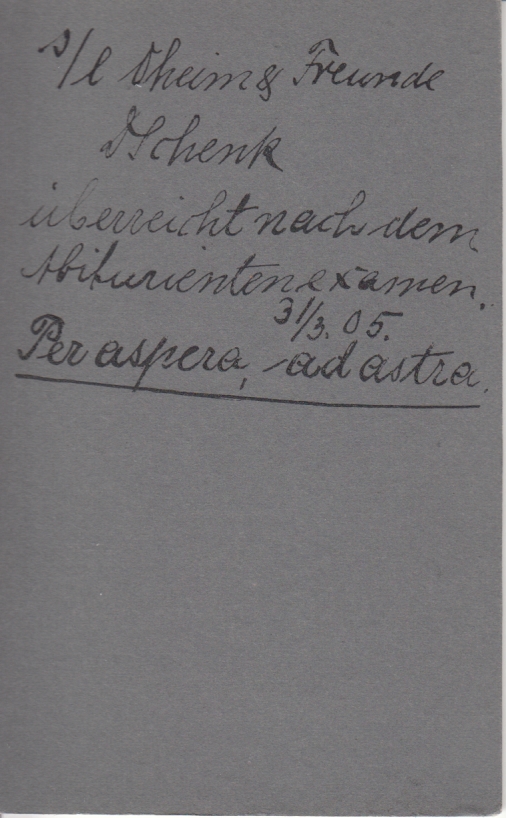 s/l Oheim & Freunde
DSchenk
überreicht nach dem
Abiturientenexamen.
31/3. 05.
Per aspera, ad astra.